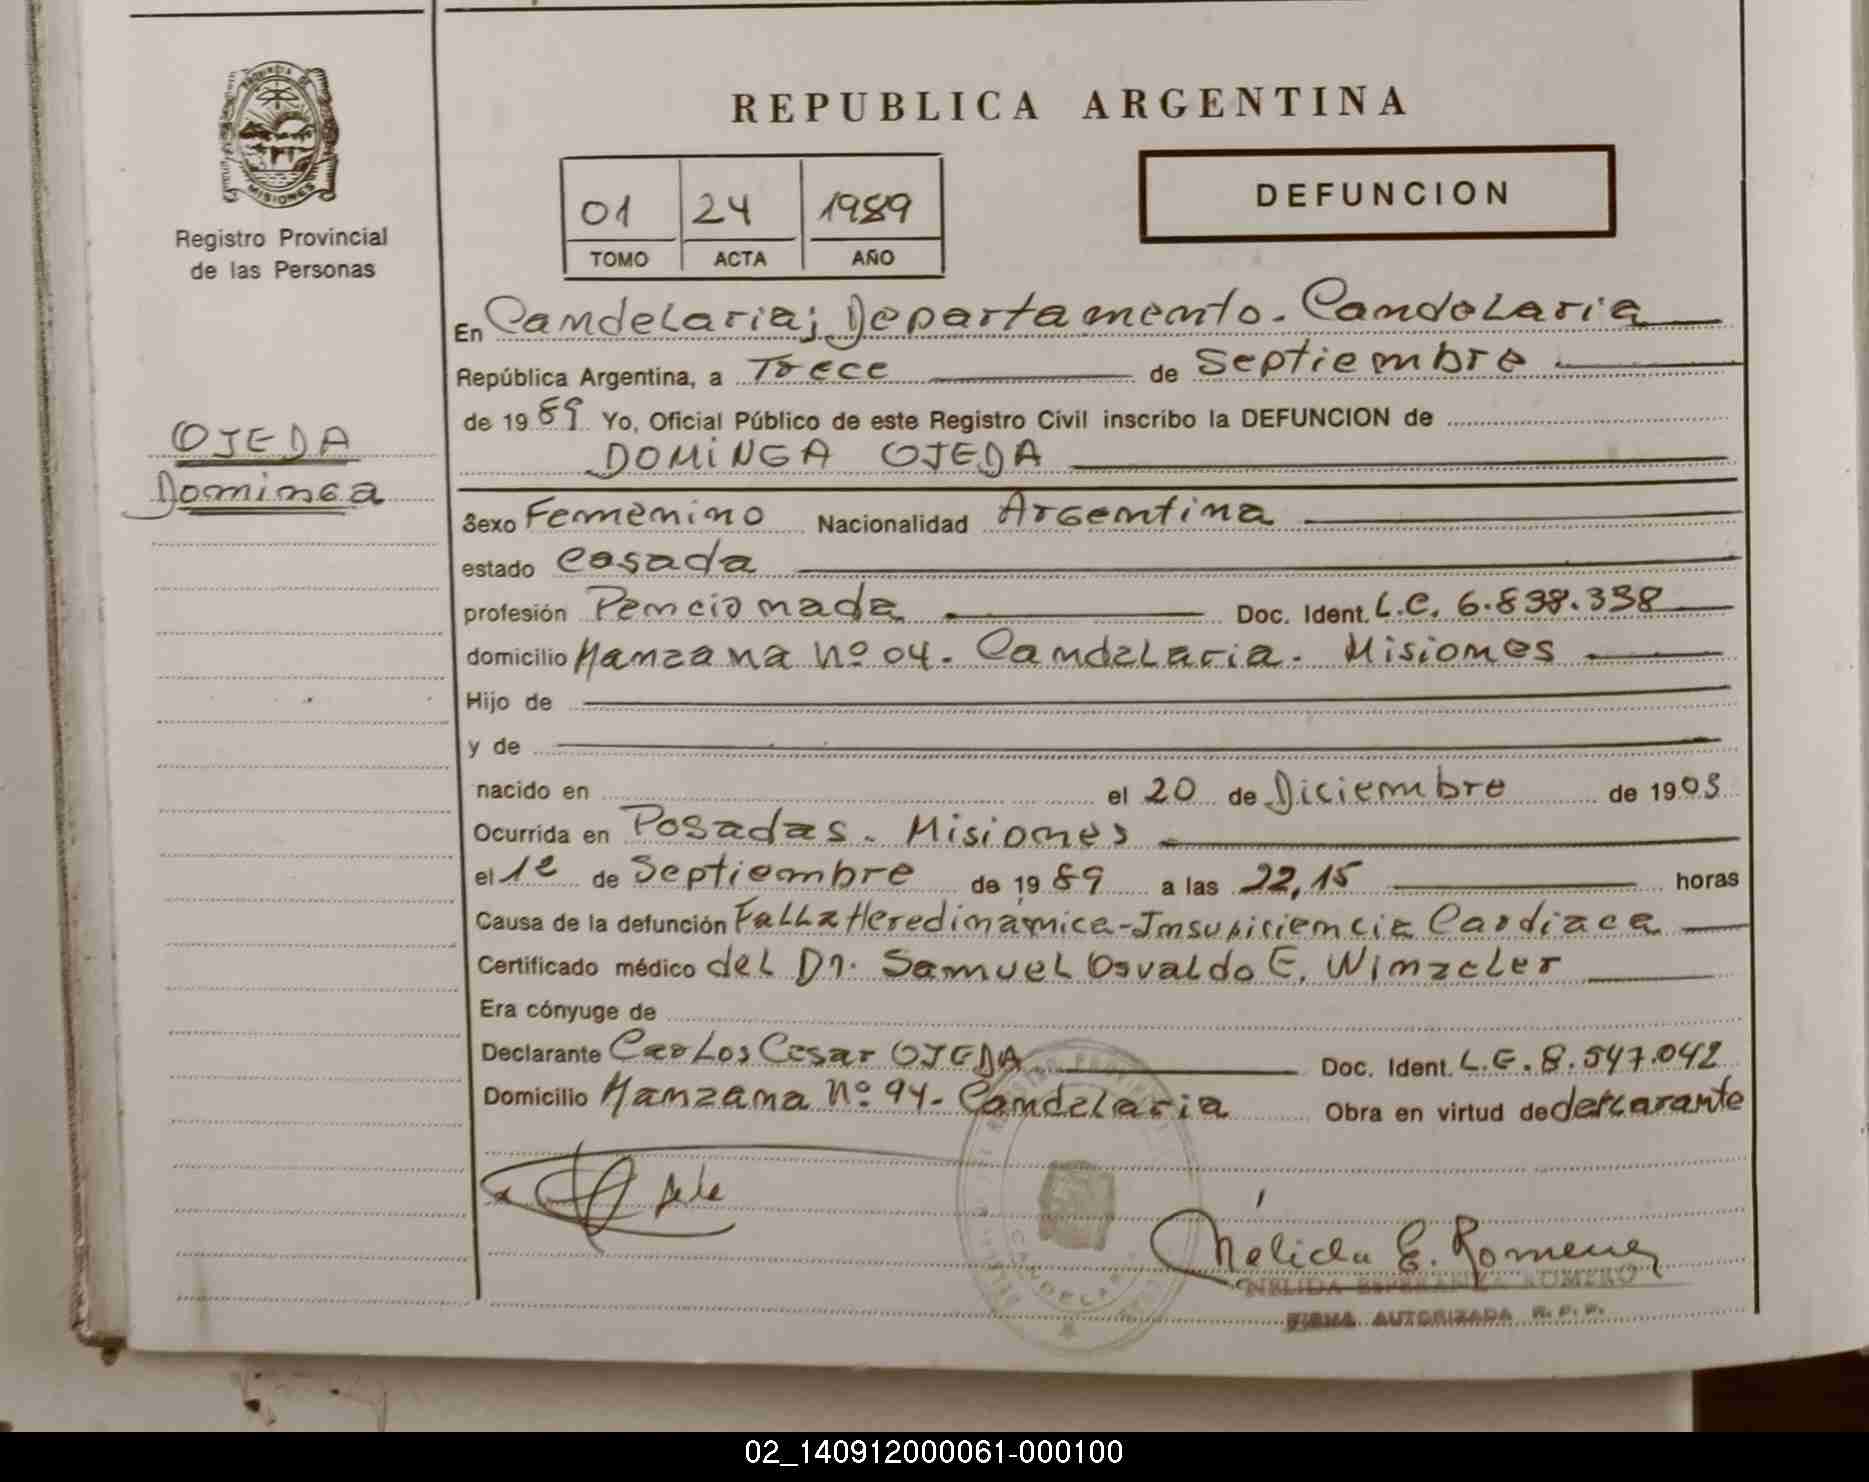 REPUBLICA ARGENTINA
PROVINCIA DE
MISIONES
Registro Provincial
de las Personas
01 24 1989
TOMO ACTA AÑO
DEFUNCION
En Candelaria; Departamento. Candelaria
República Argentina, a Trece de Septiembre
de 1989 Yo, Oficial Público de este Registro Civil inscribo la DEFUNCION de
OJEDA
Dominga
DOMINGA OJEDA
Sexo Femenino Nacionalidad Argentina
estado Casada
profesión Pencionada Doc. Ident. L.C. 6.838.338
domicilio Manzana Nº 04. Candelaria. Misiones
Hijo de
y de
nacido en el 20 de Diciembre de 1903
Ocurrida en Posadas. Misiones
el 1º de Septiembre de 1989 a las 22,15 horas
Causa de la defunción Falla Heredinamica-Insuficiencia Cardiaca
Certificado médico del Dr. Samuel Osvaldo E. Winzcler
Era cónyuge de
Declarante Carlos Cesar OJEDA Doc. Ident. L.E. 8.547.042
Domicilio Manzana Nº 94. Candelaria Obra en virtud de declarante
Nélida E. Romero
NELIDA ESPERANZA ROMERO
FIRMA AUTORIZADA R.P.P.
02_140912000061-000100